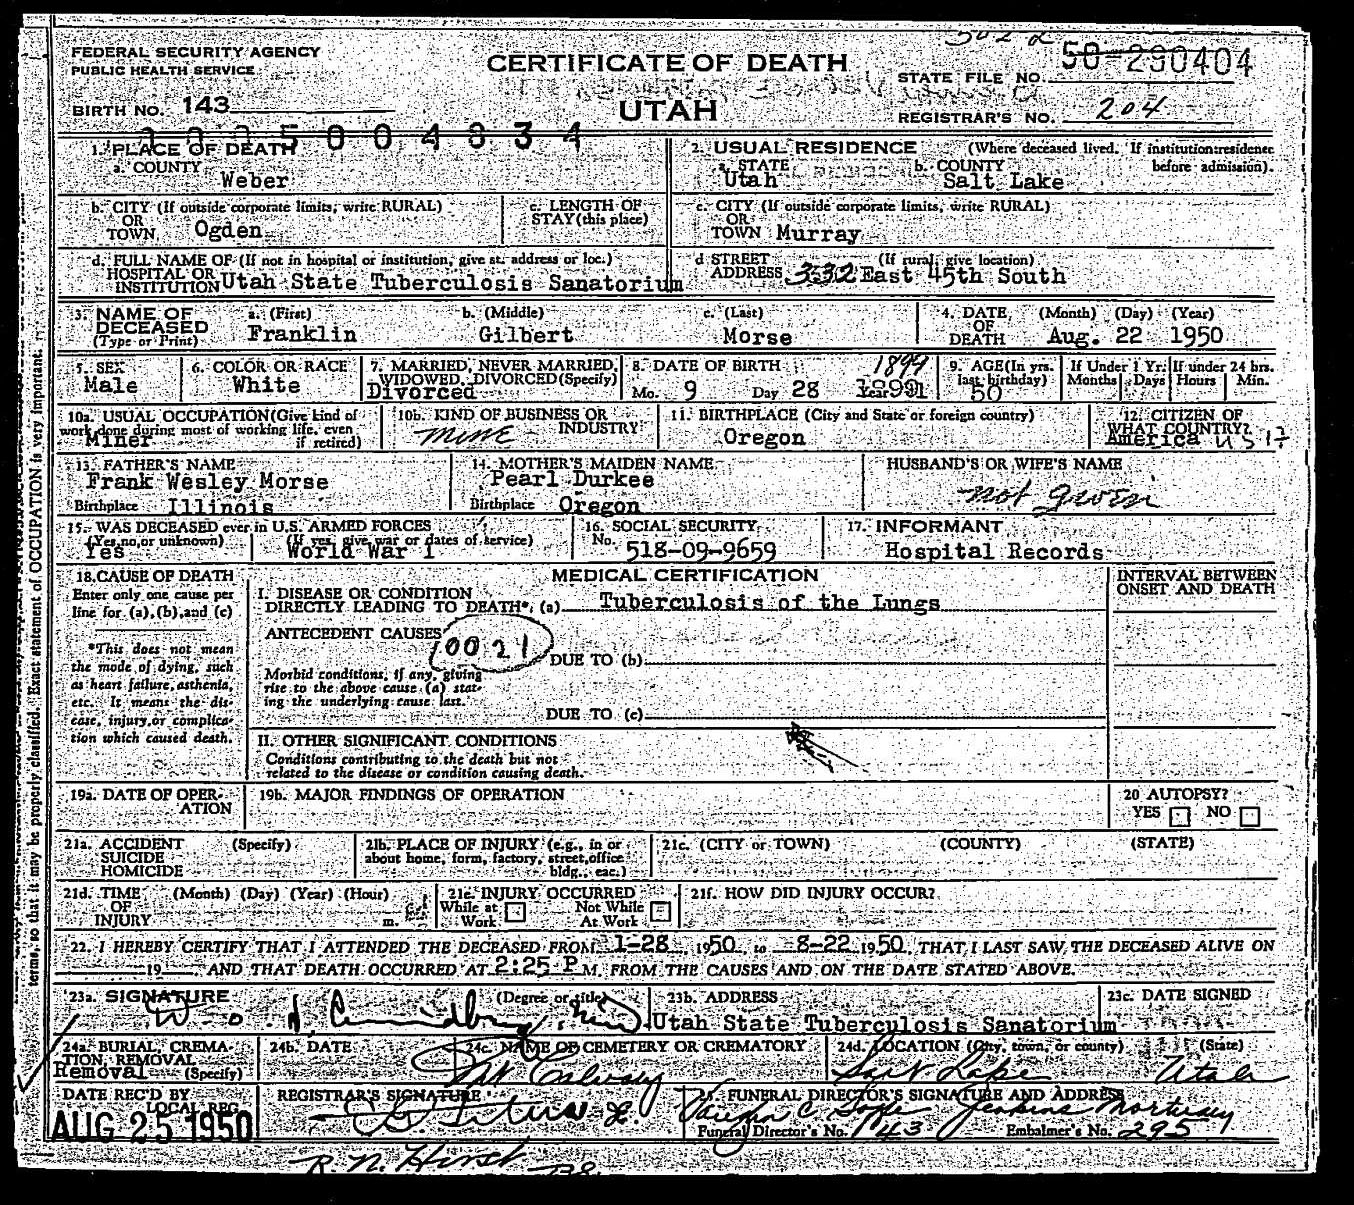 FEDERAL SECURITY AGENCY
PUBLIC HEALTH SERVICE
CERTIFICATE OF DEATH
UTAH
STATE FILE NO. 50-290404
BIRTH NO. 143
REGISTRAR'S NO. 204
1. PLACE OF DEATH
a. COUNTY
Weber
2. USUAL RESIDENCE (Where deceased lived. If institution:residence before admission).
a. STATE b. COUNTY
Utah Salt Lake
b. CITY (If outside corporate limits, write RURAL)
OR
TOWN Ogden
c. LENGTH OF
STAY (this place)
c. CITY (If outside corporate limits, write RURAL)
OR
TOWN Murray
d. FULL NAME OF (If not in hospital or institution, give st. address or loc.)
HOSPITAL OR
INSTITUTION Utah State Tuberculosis Sanatorium
d STREET (If rural, give location)
ADDRESS 332 East 45th South
3. NAME OF DECEASED (Type or Print)
a. (First) b. (Middle) c. (Last)
Franklin Gilbert Morse
4. DATE OF DEATH (Month) (Day) (Year)
Aug. 22 1950
5. SEX
Male
6. COLOR OR RACE
White
7. MARRIED, NEVER MARRIED, WIDOWED, DIVORCED (Specify)
Divorced
8. DATE OF BIRTH 1899
Mo. 9 Day 28 Year
9. AGE (In yrs. last birthday)
50
If Under 1 Yr.
Months Days
If under 24 hrs.
Hours Min.
10a. USUAL OCCUPATION (Give kind of work done during most of working life, even if retired)
Miner
10b. KIND OF BUSINESS OR INDUSTRY
Mine
11. BIRTHPLACE (City and State or foreign country)
Oregon
12. CITIZEN OF WHAT COUNTRY?
America
13. FATHER'S NAME
Frank Wesley Morse
Birthplace Illinois
14. MOTHER'S MAIDEN NAME
Pearl Durkee
Birthplace Oregon
HUSBAND'S OR WIFE'S NAME
not given
15. WAS DECEASED ever in U.S. ARMED FORCES
(Yes, no, or unknown) (If yes, give war or dates of service)
Yes World War 1
16. SOCIAL SECURITY
No. 518-09-9659
17. INFORMANT
Hospital Records
18. CAUSE OF DEATH
Enter only one cause per line for (a), (b), and (c)
*This does not mean the mode of dying, such as heart failure, asthenia, etc. It means the disease, injury, or complication which caused death.
MEDICAL CERTIFICATION
I. DISEASE OR CONDITION
DIRECTLY LEADING TO DEATH*. (a) Tuberculosis of the Lungs
ANTECEDENT CAUSES
0021
DUE TO (b)
Morbid conditions, if any, giving rise to the above cause (a) stating the underlying cause last.
DUE TO (c)
II. OTHER SIGNIFICANT CONDITIONS
Conditions contributing to the death but not related to the disease or condition causing death.
INTERVAL BETWEEN ONSET AND DEATH
19a. DATE OF OPERATION
19b. MAJOR FINDINGS OF OPERATION
20 AUTOPSY?
YES NO
21a. ACCIDENT (Specify)
SUICIDE
HOMICIDE
21b. PLACE OF INJURY (e.g., in or about home, form, factory, street, office bldg., eac.)
21c. (CITY or TOWN) (COUNTY) (STATE)
21d. TIME (Month) (Day) (Year) (Hour)
OF
INJURY m.
21e. INJURY OCCURRED
While at Work Not While At Work
21f. HOW DID INJURY OCCUR?
22. I HEREBY CERTIFY THAT I ATTENDED THE DECEASED FROM 1-28, 1950, to 8-22, 1950, THAT I LAST SAW THE DECEASED ALIVE ON
19 , AND THAT DEATH OCCURRED AT 2:25 P M, FROM THE CAUSES AND ON THE DATE STATED ABOVE.
23a. SIGNATURE (Degree or title)
23b. ADDRESS
Utah State Tuberculosis Sanatorium
23c. DATE SIGNED
24a. BURIAL, CREMATION, REMOVAL (Specify)
Removal
24b. DATE
24c. NAME OF CEMETERY OR CREMATORY
24d. LOCATION (City, town, or county) (State)
Salt Lake Utah
DATE REC'D BY LOCAL REG.
AUG 25 1950
REGISTRAR'S SIGNATURE
25. FUNERAL DIRECTOR'S SIGNATURE AND ADDRESS
Jenkins Mortuary
Funeral Director's No. 143 Embalmer's No. 295
R. N. Hirst
terms, so that it may be properly classified. Exact statement of OCCUPATION is very important.